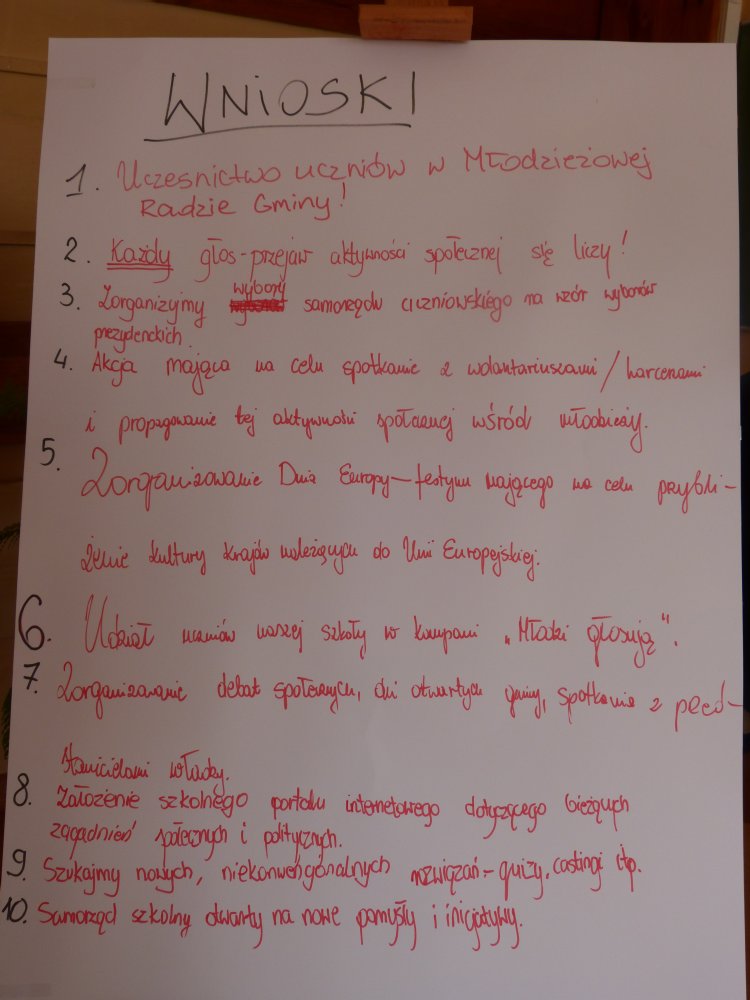 WNIOSKI
1. Uczesnictwo uczniów w Młodzieżowej
Radzie Gminy!
2. Każdy głos - przejaw aktywności społecznej się liczy!
3. Zorganizujmy wybory samorządu uczniowskiego na wzór wyborów
prezydenckich.
4. Akcja mająca na celu spotkanie z wolontariuszami / harcerzami
i propagowanie tej aktywności społecznej wśród młodzieży.
5. Zorganizowanie Dnia Europy – festynu mającego na celu przybli-
żenie kultury krajów należących do Unii Europejskiej.
6. Udział uczniów naszej szkoły w kampanii „Młodzi głosują".
7. Zorganizowanie debat społecznych, dni otwartych gminy, spotkania z przed-
stawicielami władzy.
8. Założenie szkolnego portalu internetowego dotyczącego bieżących
zagadnień społecznych i politycznych.
9. Szukajmy nowych, niekonwencjonalnych rozwiązań - quizy, castingi itp.
10. Samorząd szkolny otwarty na nowe pomysły i inicjatywy.